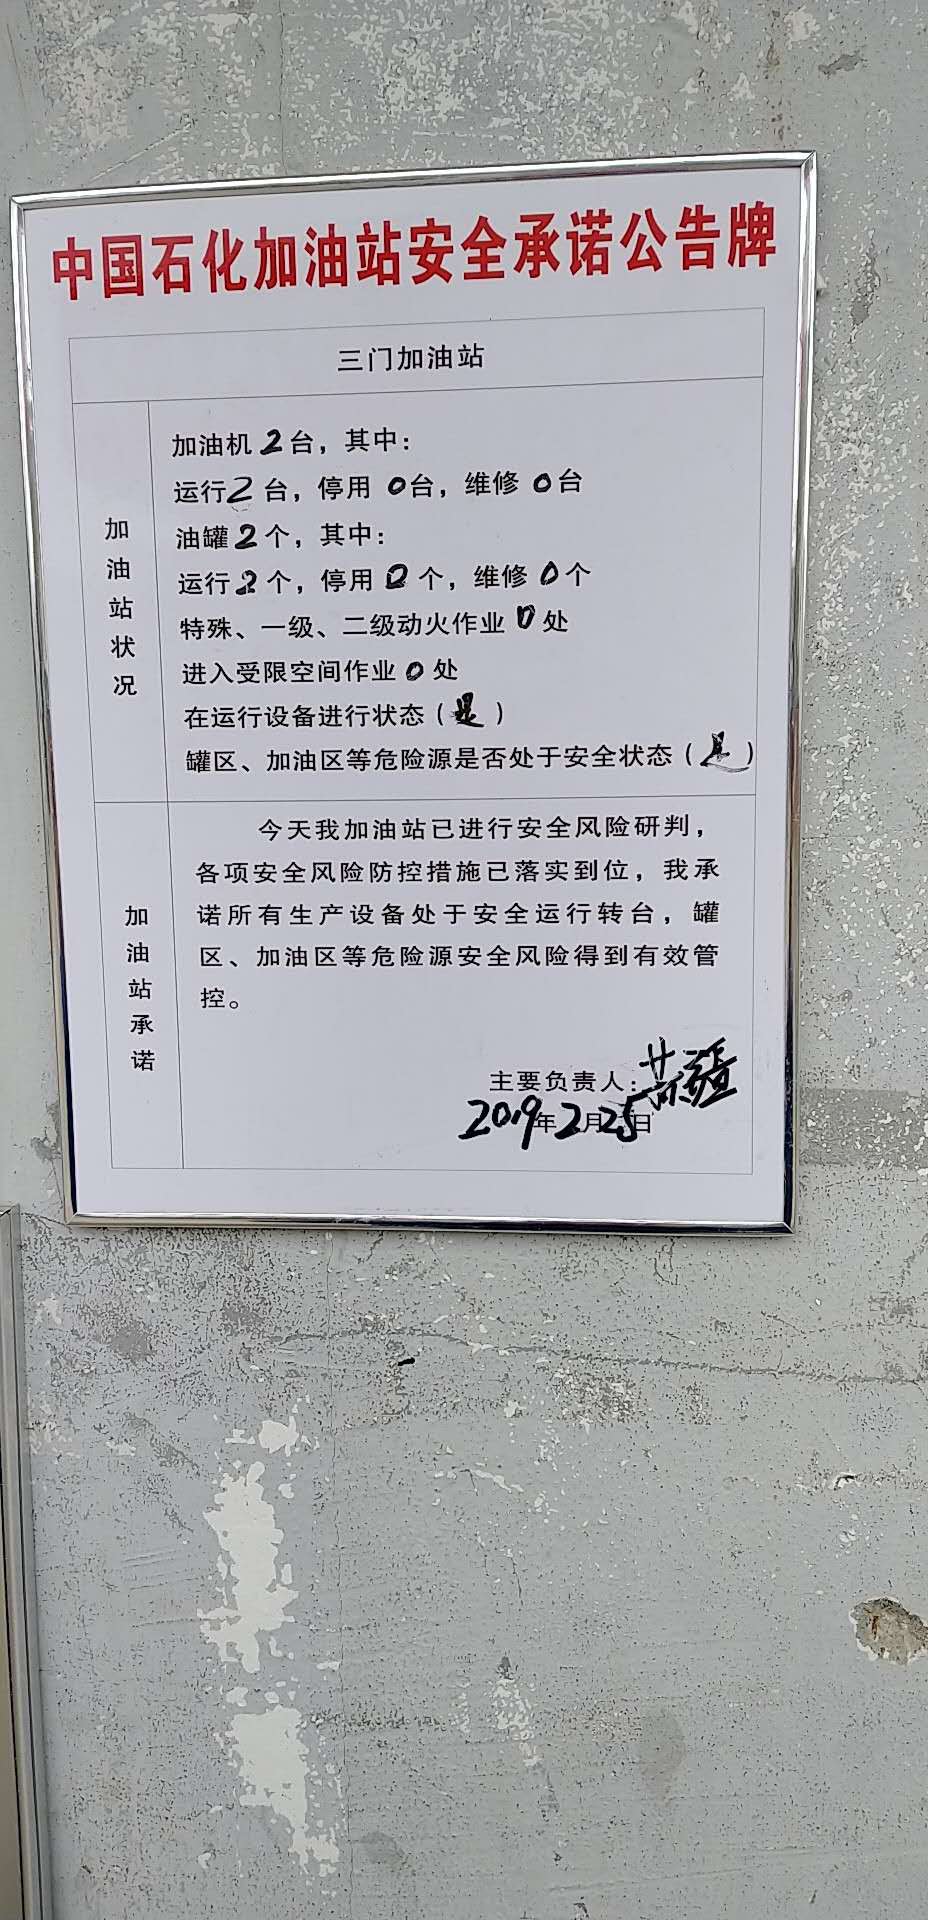 中国石化加油站安全承诺公告牌
三门加油站
加油站状况
加油机2台，其中：
运行2台，停用0台，维修0台
油罐2个，其中：
运行2个，停用0个，维修0个
特殊、一级、二级动火作业0处
进入受限空间作业0处
在运行设备进行状态（是）
罐区、加油区等危险源是否处于安全状态（是）
加油站承诺
今天我加油站已进行安全风险研判，
各项安全风险防控措施已落实到位，我承
诺所有生产设备处于安全运行转台，罐
区、加油区等危险源安全风险得到有效管
控。
主要负责人：
2019年2月25日